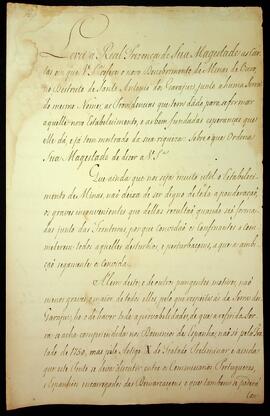 Levei à Real Presença de Sua Magestade as Car-
tas em que V. S.ª refere o novo Descobrimento de Minas de Ouro,
no Destricto de Santo Antonio dos Garajuzes, junto a huma Serra
do mesmo Nome; as Providencias que tem dado para se formar
aquelle novo Estabelecimento, e as bem fundadas esperanças que
elle dá, e já tem mostrado da sua riqueza: Sobre o que Ordena
Sua Magestade de dizer a V. S.ª
Que ainda que nos seja muito util o Estabele-
cimento de Minas, não deixa de ser digno de toda a ponderação,
os graves inconvenientes que dellas resultão quando são forma-
das junto das Fronteiras, porque convidão os Confinantes a com-
meterem todos aquelles disturbios, e perturbaçoens, a que a ambi-
ção cegamente os convida.
Alem deste, e de outros pungentes motivos, não
menos graves, o maior de todos elles pelo que respeita às Serras dos
he o de haver toda a probabilidade, de que a referida Ser-
ra se acha comprehendida nos Dominios de Espanha, não só pelo Tra-
tado de 1750, mas pelo Artigo X do Tratado Preliminar: e ainda
que este Ponto se deva discutir entre os Comissarios Portuguezes,
e Espanhoes encarregados das Demarcaçoens e que tambem se poderá